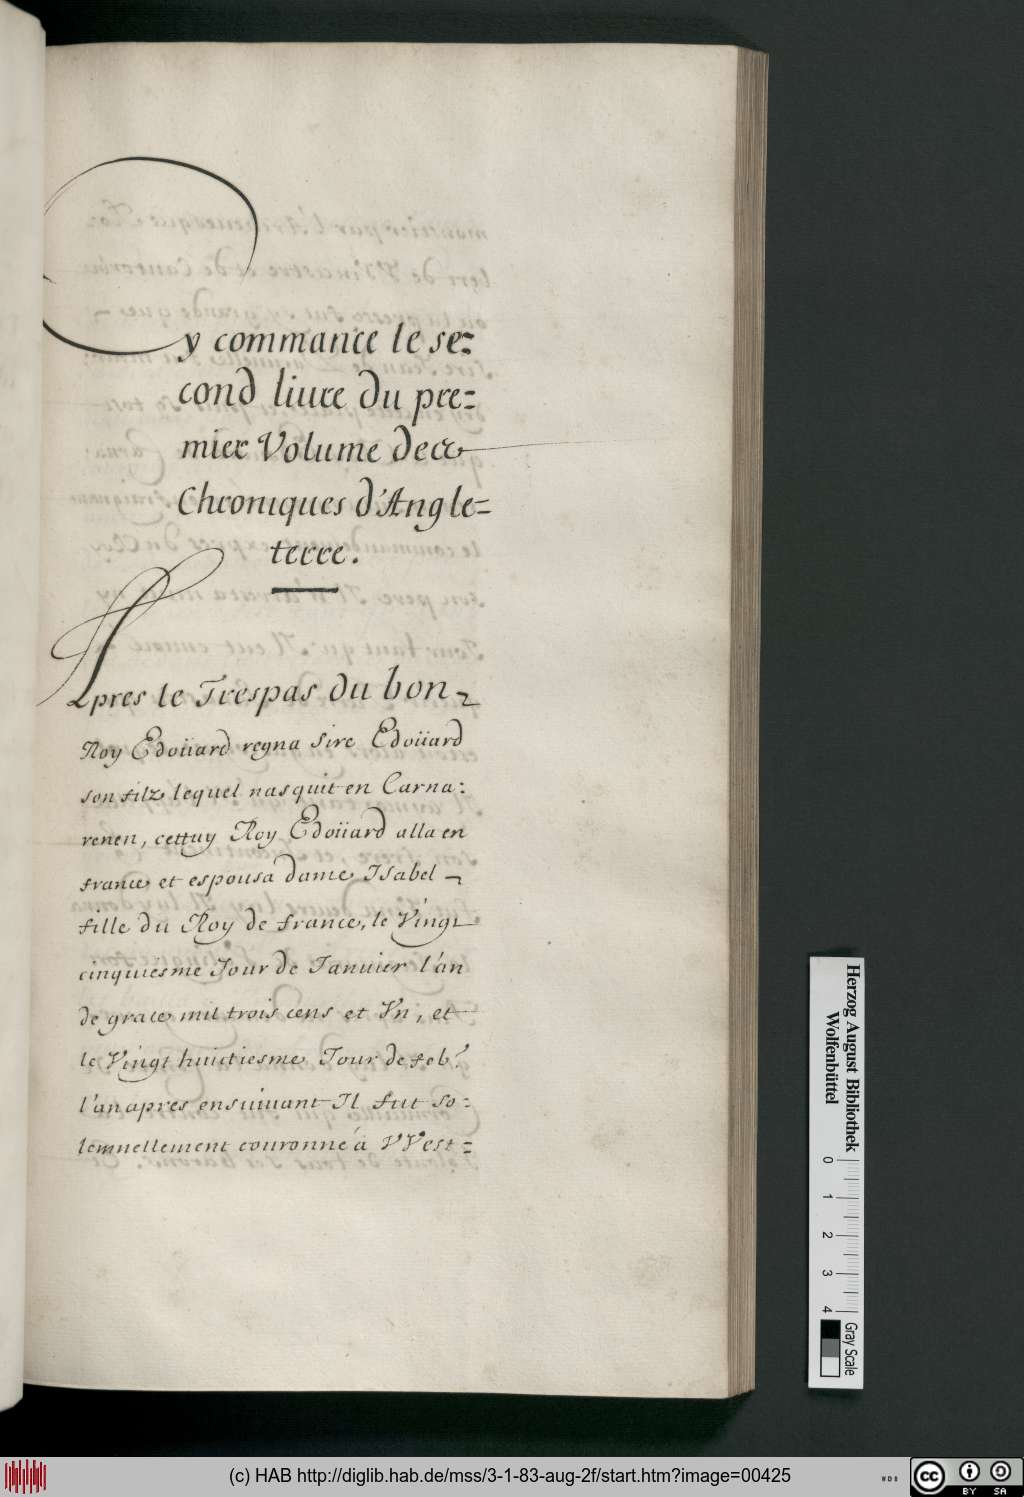 Cy commance le se:
cond liure du pre-
mier Volume des
Chroniques d'Angle=
terre.
Apres le Trespas du bon
Roy Edoüard regna sire Edoüard
son filz lequel nasquit en Carna:
renen, cettuy Roy Edoüard alla en
france et espousa dame Isabel
fille du Roy de france, le Vingt
cinquiesme Jour de Januier l'an
de grace mil trois cens et Vn, et
le Vingt huictiesme Jour de feb?
l'an apres ensuiuant Il fut so:
lemnellement couronné a VVest=
Herzog August Bibliothek
Wolfenbüttel
0 1 2 3 4
Gray Scale
(c) HAB http://diglib.hab.de/mss/3-1-83-aug-2f/start.htm?image=00425
WDB
cc
BY SA